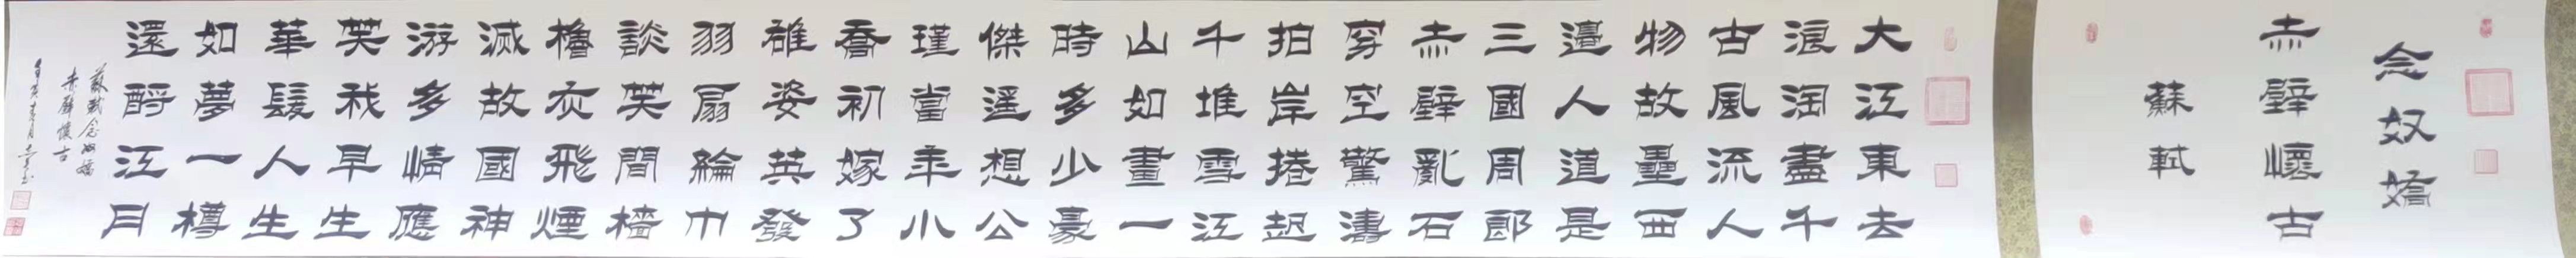 念奴嬌
赤壁懷古
蘇軾
大江東去
浪淘盡千
古風流人
物故壘西
邊人道是
三國周郎
赤壁亂石
穿空驚濤
拍岸捲起
千堆雪江
山如畫一
時多少豪
傑遥想公
瑾當年小
喬初嫁了
雄姿英發
羽扇綸巾
談笑間檣
櫓灰飛煙
滅故國神
游多情應
笑我早生
華髮人生
如夢一樽
還酹江月
蘇軾念奴嬌
赤壁懷古